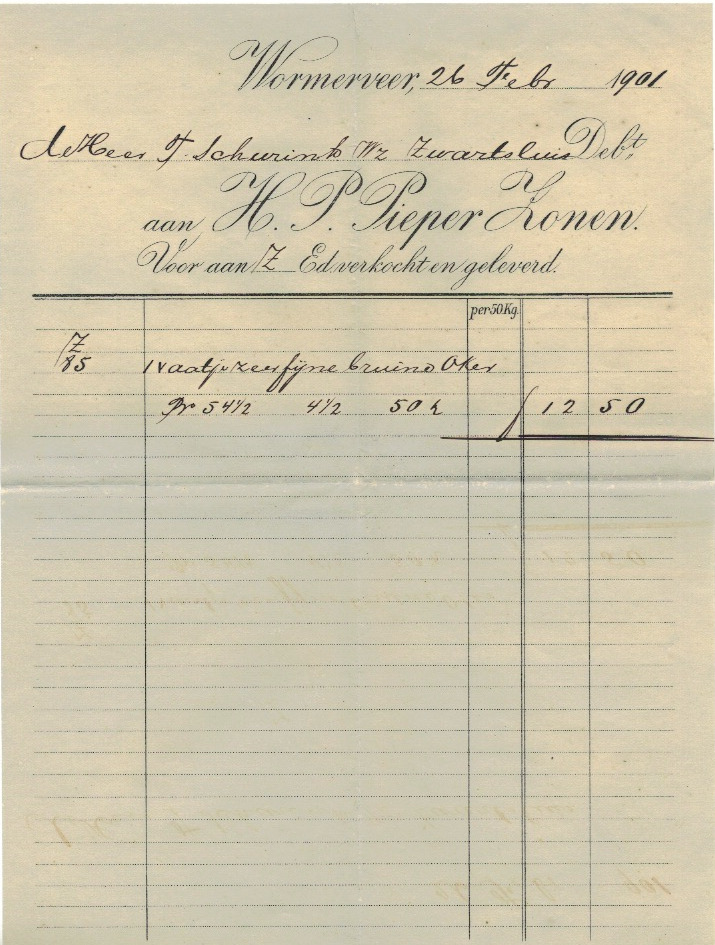 Wormerveer, 26 Febr 1901
de Heer F. Schurink Wz Zwartsluis Debt.
aan H. P. Pieper Zonen.
Voor aan Z Ed. verkocht en geleverd.
per 50 Kg.
Z
85 1 vaatje zeer fijne bruine Oker
Br 54 1/2 4 1/2 50 k f 12 50